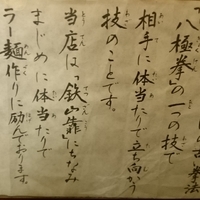 古い拳法
八極拳」の一つの技で
相手に体当たりで立ち向かう
技のことです。
当店はっ鉄山靠にちなみ
まじめに体当たりで
ラー麺作りに励んでおります。